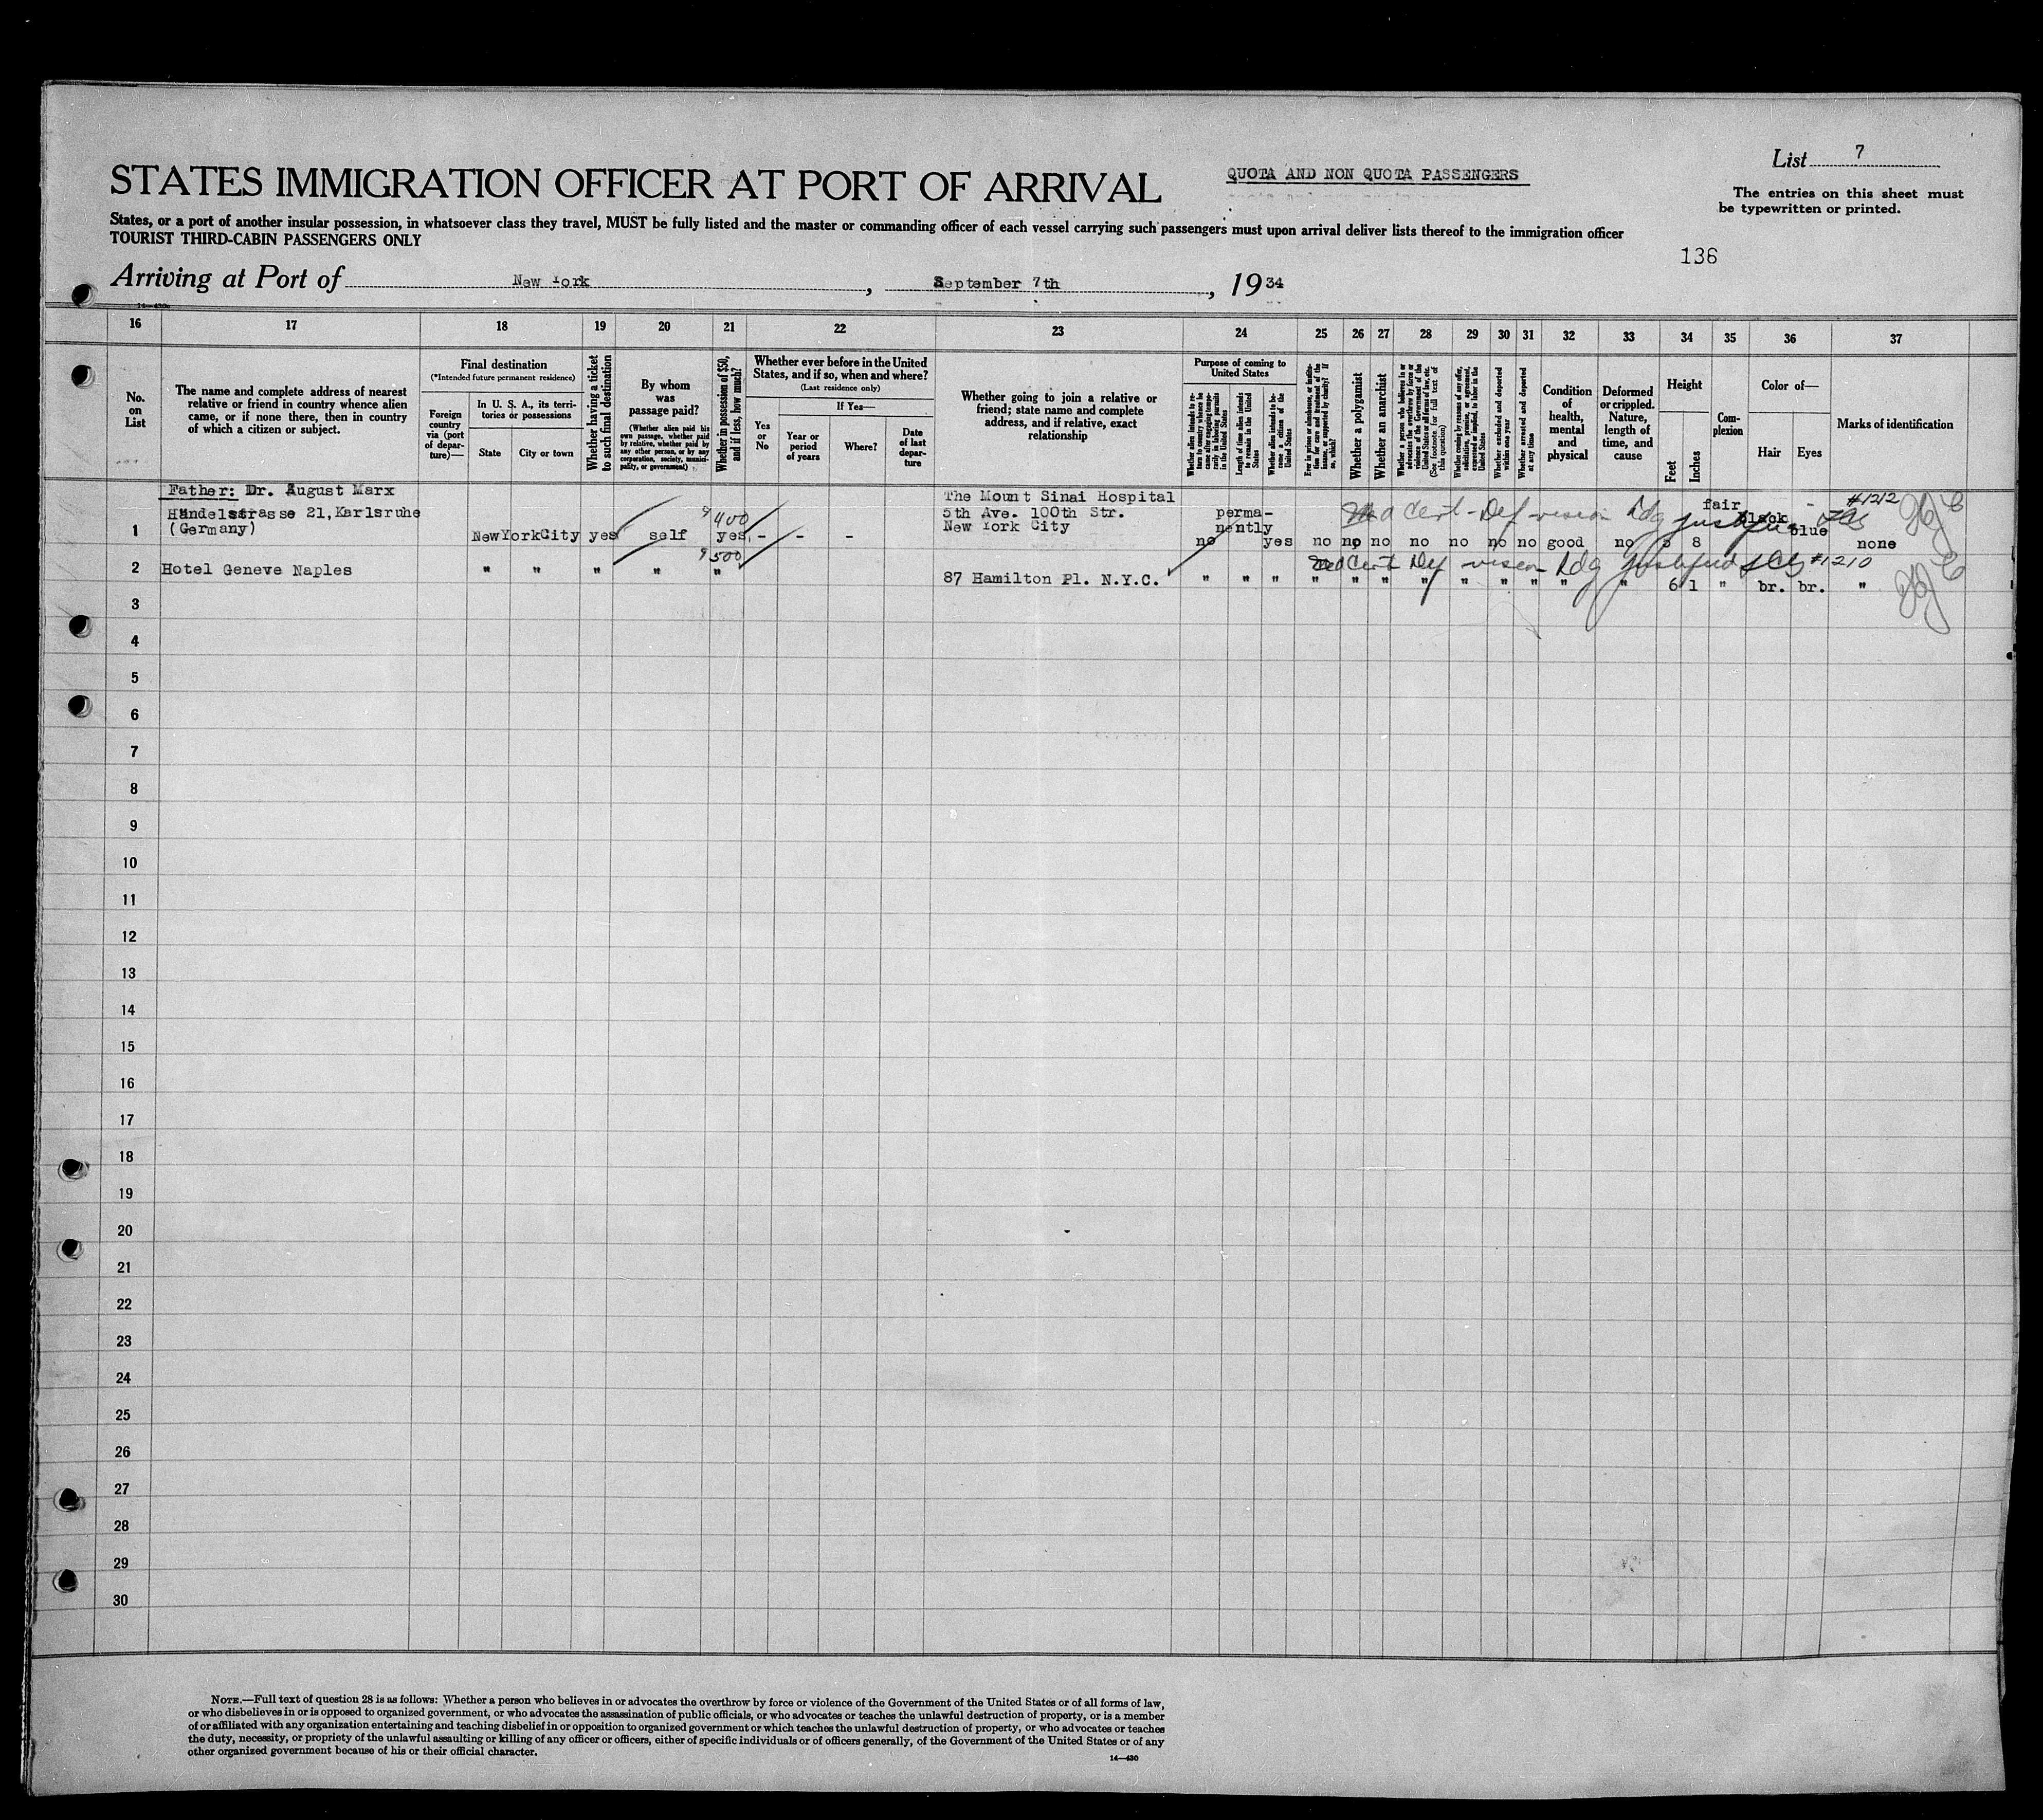 List 7
STATES IMMIGRATION OFFICER AT PORT OF ARRIVAL
QUOTA AND NON QUOTA PASSENGERS
The entries on this sheet must
be typewritten or printed.
States, or a port of another insular possession, in whatsoever class they travel, MUST be fully listed and the master or commanding officer of each vessel carrying such passengers must upon arrival deliver lists thereof to the immigration officer
TOURIST THIRD-CABIN PASSENGERS ONLY
136
Arriving at Port of New York, September 7th, 1934
16 17 18 19 20 21 22 23 24 25 26 27 28 29 30 31 32 33 34 35 36 37
No.
on
List
The name and complete address of nearest
relative or friend in country whence alien
came, or if none there, then in country
of which a citizen or subject.
Final destination
(*Intended future permanent residence)
Foreign
country
via (port
of depar-
ture)—
In U. S. A., its terri-
tories or possessions
State
City or town
Whether having a ticket
to such final destination
By whom
was
passage paid?
(Whether alien paid his
own passage, whether paid
by relative, whether paid by
any other person, or by any
corporation, society, munici-
pality, or government)
Whether in possession of $50,
and if less, how much?
Whether ever before in the United
States, and if so, when and where?
(Last residence only)
Yes
or
No
If Yes—
Year or
period
of years
Where?
Date
of last
depar-
ture
Whether going to join a relative or
friend; state name and complete
address, and if relative, exact
relationship
Purpose of coming to
United States
Whether alien intends to re-
turn to country whence he
came after engaging tempo-
rarily in laboring pursuits
in the United States
Length of time alien intends
to remain in the United
States
Whether alien intends to be-
come a citizen of the
United States
Ever in prison or almshouse, or institu-
tion for care and treatment of the
insane, or supported by charity? If
so, which?
Whether a polygamist
Whether an anarchist
Whether a person who believes in or
advocates the overthrow by force or
violence of the Government of the
United States or all forms of law, etc.
(See footnote for full text of
this question)
Whether coming by reason of any offer,
solicitation, promise, or agreement,
expressed or implied, to labor in the
United States
Whether excluded and deported
within one year
Whether arrested and deported
at any time
Condition
of
health,
mental
and
physical
Deformed
or crippled.
Nature,
length of
time, and
cause
Height
Feet
Inches
Com-
plexion
Color of—
Hair
Eyes
Marks of identification
Father: Dr. August Marx
Händelstrasse 21, Karlsruhe
(Germany)
1 NewYorkCity yes self $400 yes - - -
The Mount Sinai Hospital
5th Ave. 100th Str.
New York City
no perma-
nently
yes no no no no no no no good no 5 8 fair black blue none
Med Cert - Def vision Ldg justified #1212
2 Hotel Geneve Naples " " " " $500 "
87 Hamilton Pl. N.Y.C. " " " " " " " " " " " " 6 1 " br. br. "
Med Cert Def vision Ldg justified #1210
3
4
5
6
7
8
9
10
11
12
13
14
15
16
17
18
19
20
21
22
23
24
25
26
27
28
29
30
NOTE.—Full text of question 28 is as follows: Whether a person who believes in or advocates the overthrow by force or violence of the Government of the United States or of all forms of law,
or who disbelieves in or is opposed to organized government, or who advocates the assassination of public officials, or who advocates or teaches the unlawful destruction of property, or is a member
of or affiliated with any organization entertaining and teaching disbelief in or opposition to organized government or which teaches the unlawful destruction of property, or who advocates or teaches
the duty, necessity, or propriety of the unlawful assaulting or killing of any officer or officers, either of specific individuals or of officers generally, of the Government of the United States or of any
other organized government because of his or their official character.
14—430